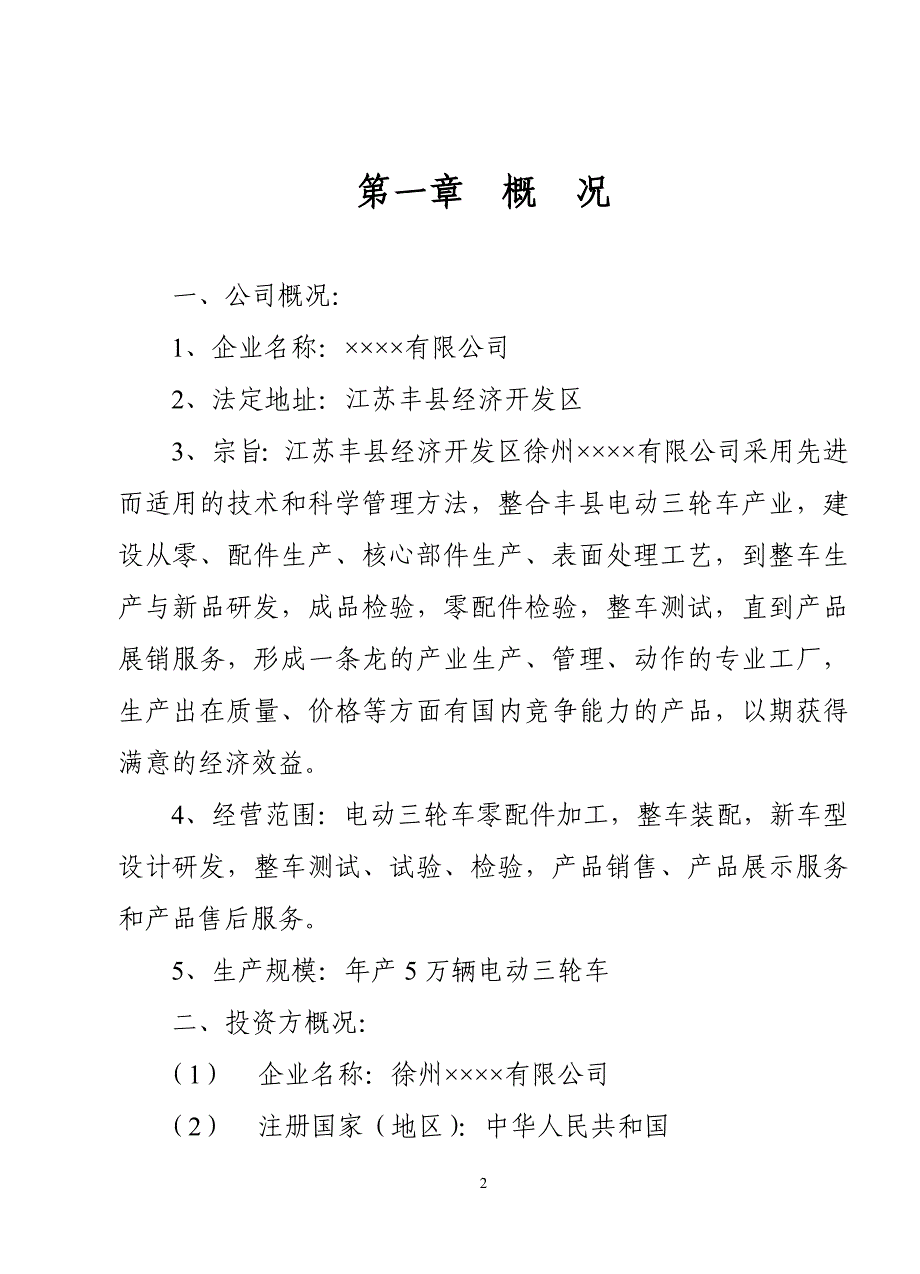 第一章　概　况
一、公司概况：
1、企业名称：××××有限公司
2、法定地址：江苏丰县经济开发区
3、宗旨：江苏丰县经济开发区徐州××××有限公司采用先进
而适用的技术和科学管理方法，整合丰县电动三轮车产业，建
设从零、配件生产、核心部件生产、表面处理工艺，到整车生
产与新品研发，成品检验，零配件检验，整车测试，直到产品
展销服务，形成一条龙的产业生产、管理、动作的专业工厂，
生产出在质量、价格等方面有国内竞争能力的产品，以期获得
满意的经济效益。
4、经营范围：电动三轮车零配件加工，整车装配，新车型
设计研发，整车测试、试验、检验，产品销售、产品展示服务
和产品售后服务。
5、生产规模：年产 5 万辆电动三轮车
二、投资方概况：
（1）　企业名称：徐州××××有限公司
（2）　注册国家（地区）：中华人民共和国
2